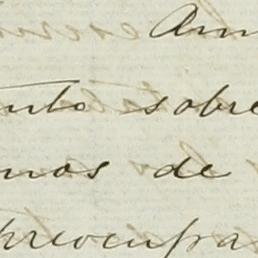 Am
nto sobre
mos de
preocupa